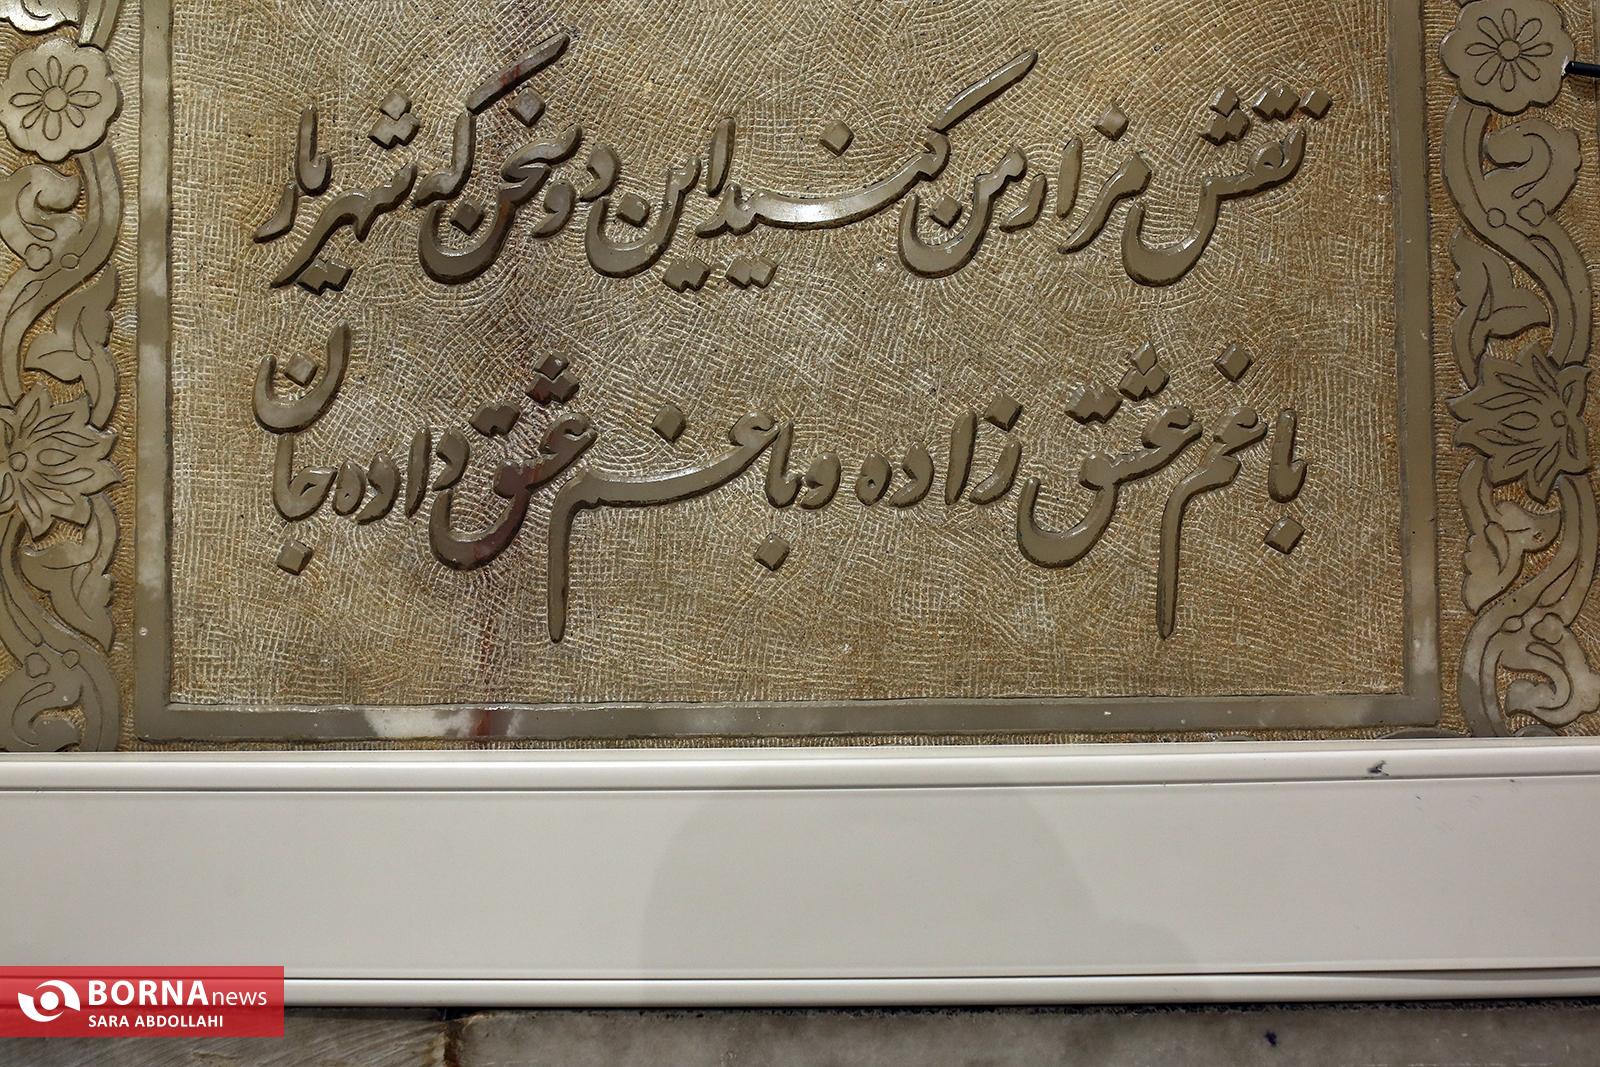 نقش مزار من کنید این دو سخن که شهریار
با غم عشق زاده و با غم عشق داده جان
BORNA news
SARA ABDOLLAHI